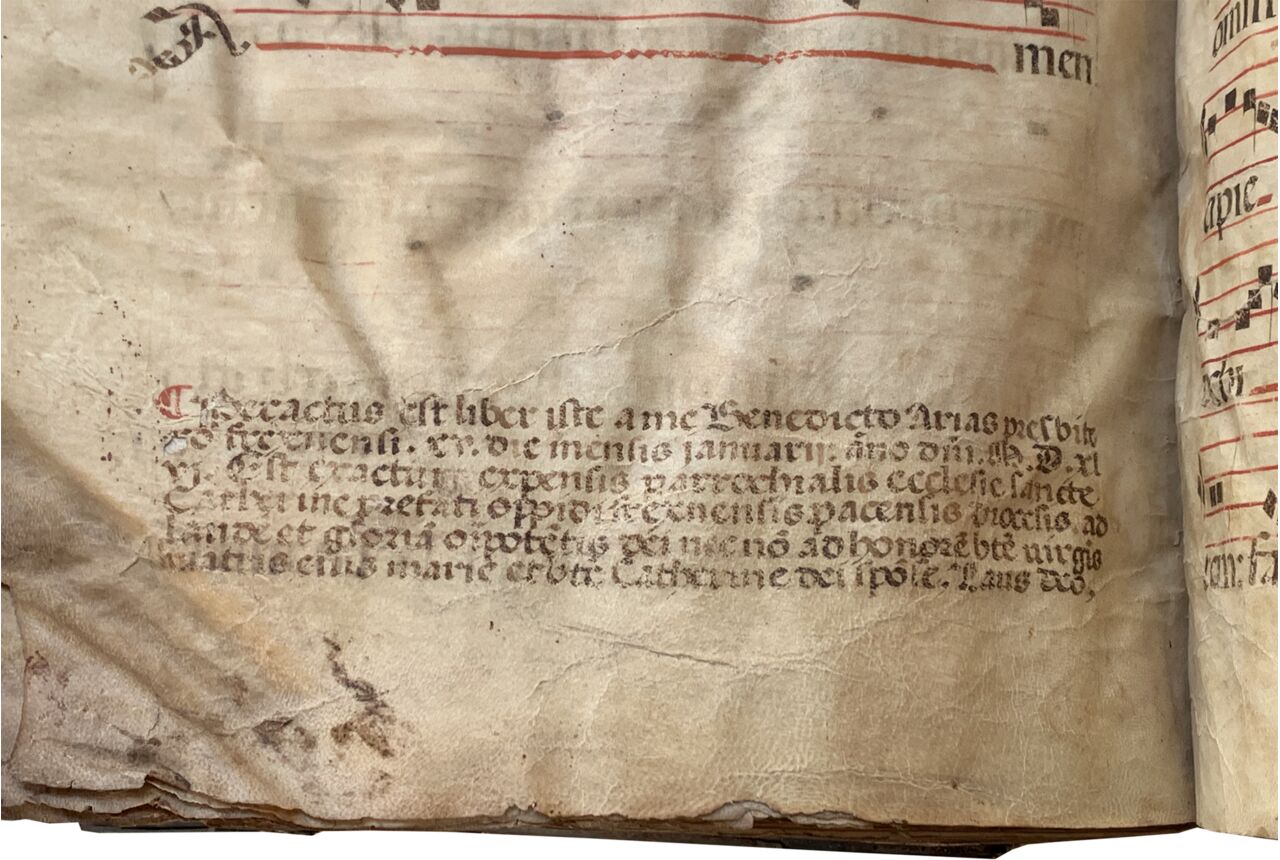 A men
¶ Peractus est liber iste a me Benedicto Arias presbite
ro frexenensi. xv. die mensis januarii. año dñi. M. D. xl
vj. Est exactum expensis parrochialis ecclesie sancte
Catherine prefati oppidi frexenensis pacensis diocesis, ad
laudē et gloriā oīpotētis dei nec nō ad honorē btē virgīs
matris eius marie et btē Catherine dei spōse. Laus deo,
apie